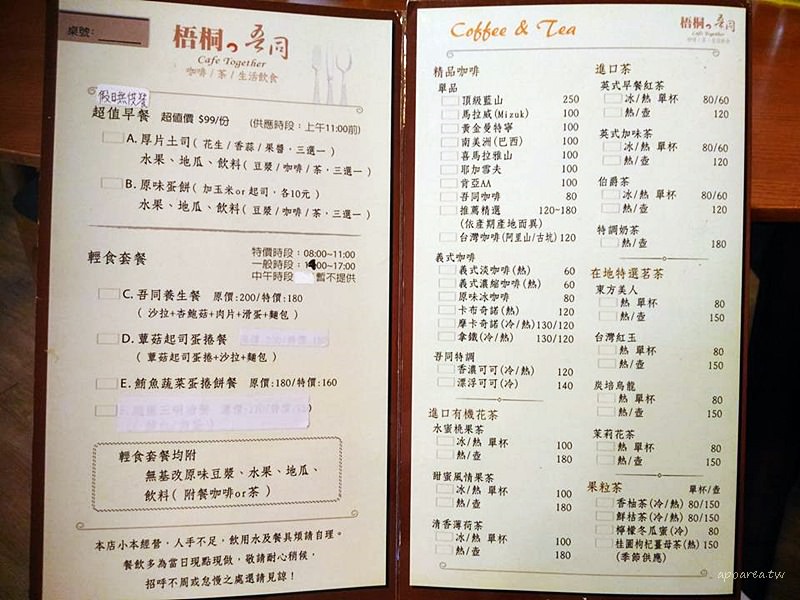 桌號:
梧桐ㄅ吾同
Cafe Together
咖啡/茶/生活飲食
假日無供餐
超值早餐 超值價 $99/份 (供應時段:上午11:00前)
A.厚片土司(花生/香蒜/果醬,三選一)
水果、地瓜、飲料(豆漿/咖啡/茶,三選一)
B.原味蛋餅(加玉米or起司,各10元)
水果、地瓜、飲料(豆漿/咖啡/茶,三選一)
輕食套餐
特價時段:08:00~11:00
一般時段:14:00~17:00
中午時段 暫不提供
C.吾同養生餐 原價:200/特價:180
(沙拉+杏鮑菇+肉片+滑蛋+麵包)
D.蕈菇起司蛋捲餐
(蕈菇起司蛋捲+沙拉+麵包)
E.鮪魚蔬菜蛋捲餅餐 原價:180/特價:160
輕食套餐均附
無基改原味豆漿、水果、地瓜、
飲料(附餐咖啡or茶)
本店小本經營,人手不足,飲用水及餐具煩請自理。
餐飲多為當日現點現做,敬請耐心稍候,
招呼不周或怠慢之處還請見諒!
Coffee & Tea
梧桐ㄅ吾同
Cafe Together
咖啡/茶/生活飲食
精品咖啡
單品
頂級藍山 250
馬拉威(Mizuk) 100
黃金曼特寧 100
南美洲(巴西) 100
喜馬拉雅山 100
耶加雪夫 100
肯亞AA 100
吾同咖啡 80
推薦精選 120~180
(依產期產地而異)
台灣咖啡(阿里山/古坑) 120
義式咖啡
義式淡咖啡(熱) 60
義式濃縮咖啡(熱) 60
原味冰咖啡 80
卡布奇諾(熱) 120
摩卡奇諾(冷/熱) 130/120
拿鐵(冷/熱) 130/120
吾同特調
香濃可可(冷/熱) 120
漂浮可可(冷) 140
進口有機花茶
水蜜桃果茶
冰/熱 單杯 100
熱/壺 180
甜蜜風情果茶
冰/熱 單杯 100
熱/壺 180
清香薄荷茶
冰/熱 單杯 100
熱/壺 180
進口茶
英式早餐紅茶
冰/熱 單杯 80/60
熱/壺 120
英式加味茶
冰/熱 單杯 80/60
熱/壺 120
伯爵茶
冰/熱 單杯 80/60
熱/壺 120
特調奶茶
熱/壺 180
在地特選茗茶
東方美人
熱 單杯 80
熱/壺 150
台灣紅玉
熱 單杯 80
熱/壺 150
炭培烏龍
熱 單杯 80
熱/壺 150
茉莉花茶
熱 單杯 80
熱/壺 150
果粒茶 單杯/壺
香柚茶(冷/熱) 80/150
鮮桔茶(冷/熱) 80/150
檸檬冬瓜蜜(冷) 80
桂圓枸杞薑母茶(熱) 150
(季節供應)
apoarea.tw